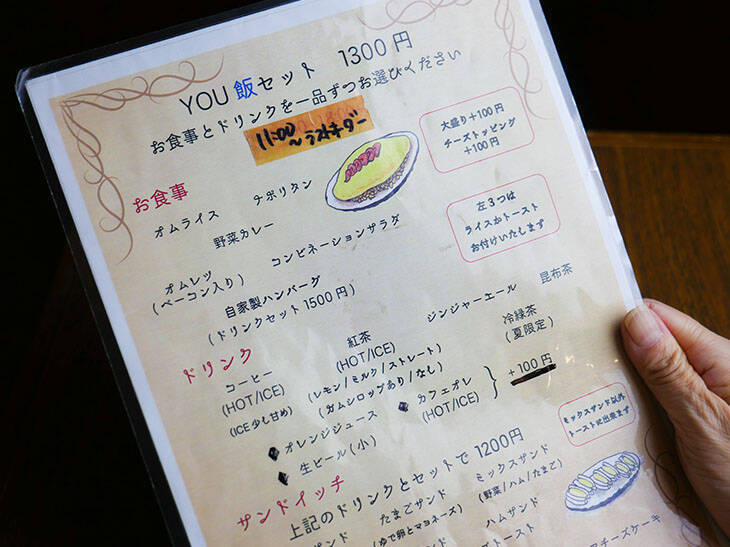 YOU飯セット 1300円
お食事とドリンクを一品ずつお選びください
11:00～ラストオーダー
大盛り+100円
チーズトッピング
+100円
お食事
オムライス ナポリタン
野菜カレー
左3つは
ライスかトースト
お付けいたします
オムレツ
(ベーコン入り)
コンビネーションサラダ
自家製ハンバーグ
(ドリンクセット1500円)
ドリンク
コーヒー
(HOT/ICE)
(ICE少し甘め)
紅茶
(HOT/ICE)
(レモン/ミルク/ストレート)
(ガムシロップあり/なし)
ジンジャーエール
昆布茶
冷緑茶
(夏限定)
◆オレンジジュース
◆カフェオレ
(HOT/ICE)
◆生ビール(小)
+100円
サンドイッチ
上記のドリンクとセットで1200円
ミックスサンド以外
トーストに出来ます
たまごサンド
(ゆで卵とマヨネーズ)
ミックスサンド
(野菜/ハム/たまご)
ハムサンド
チーズケーキ